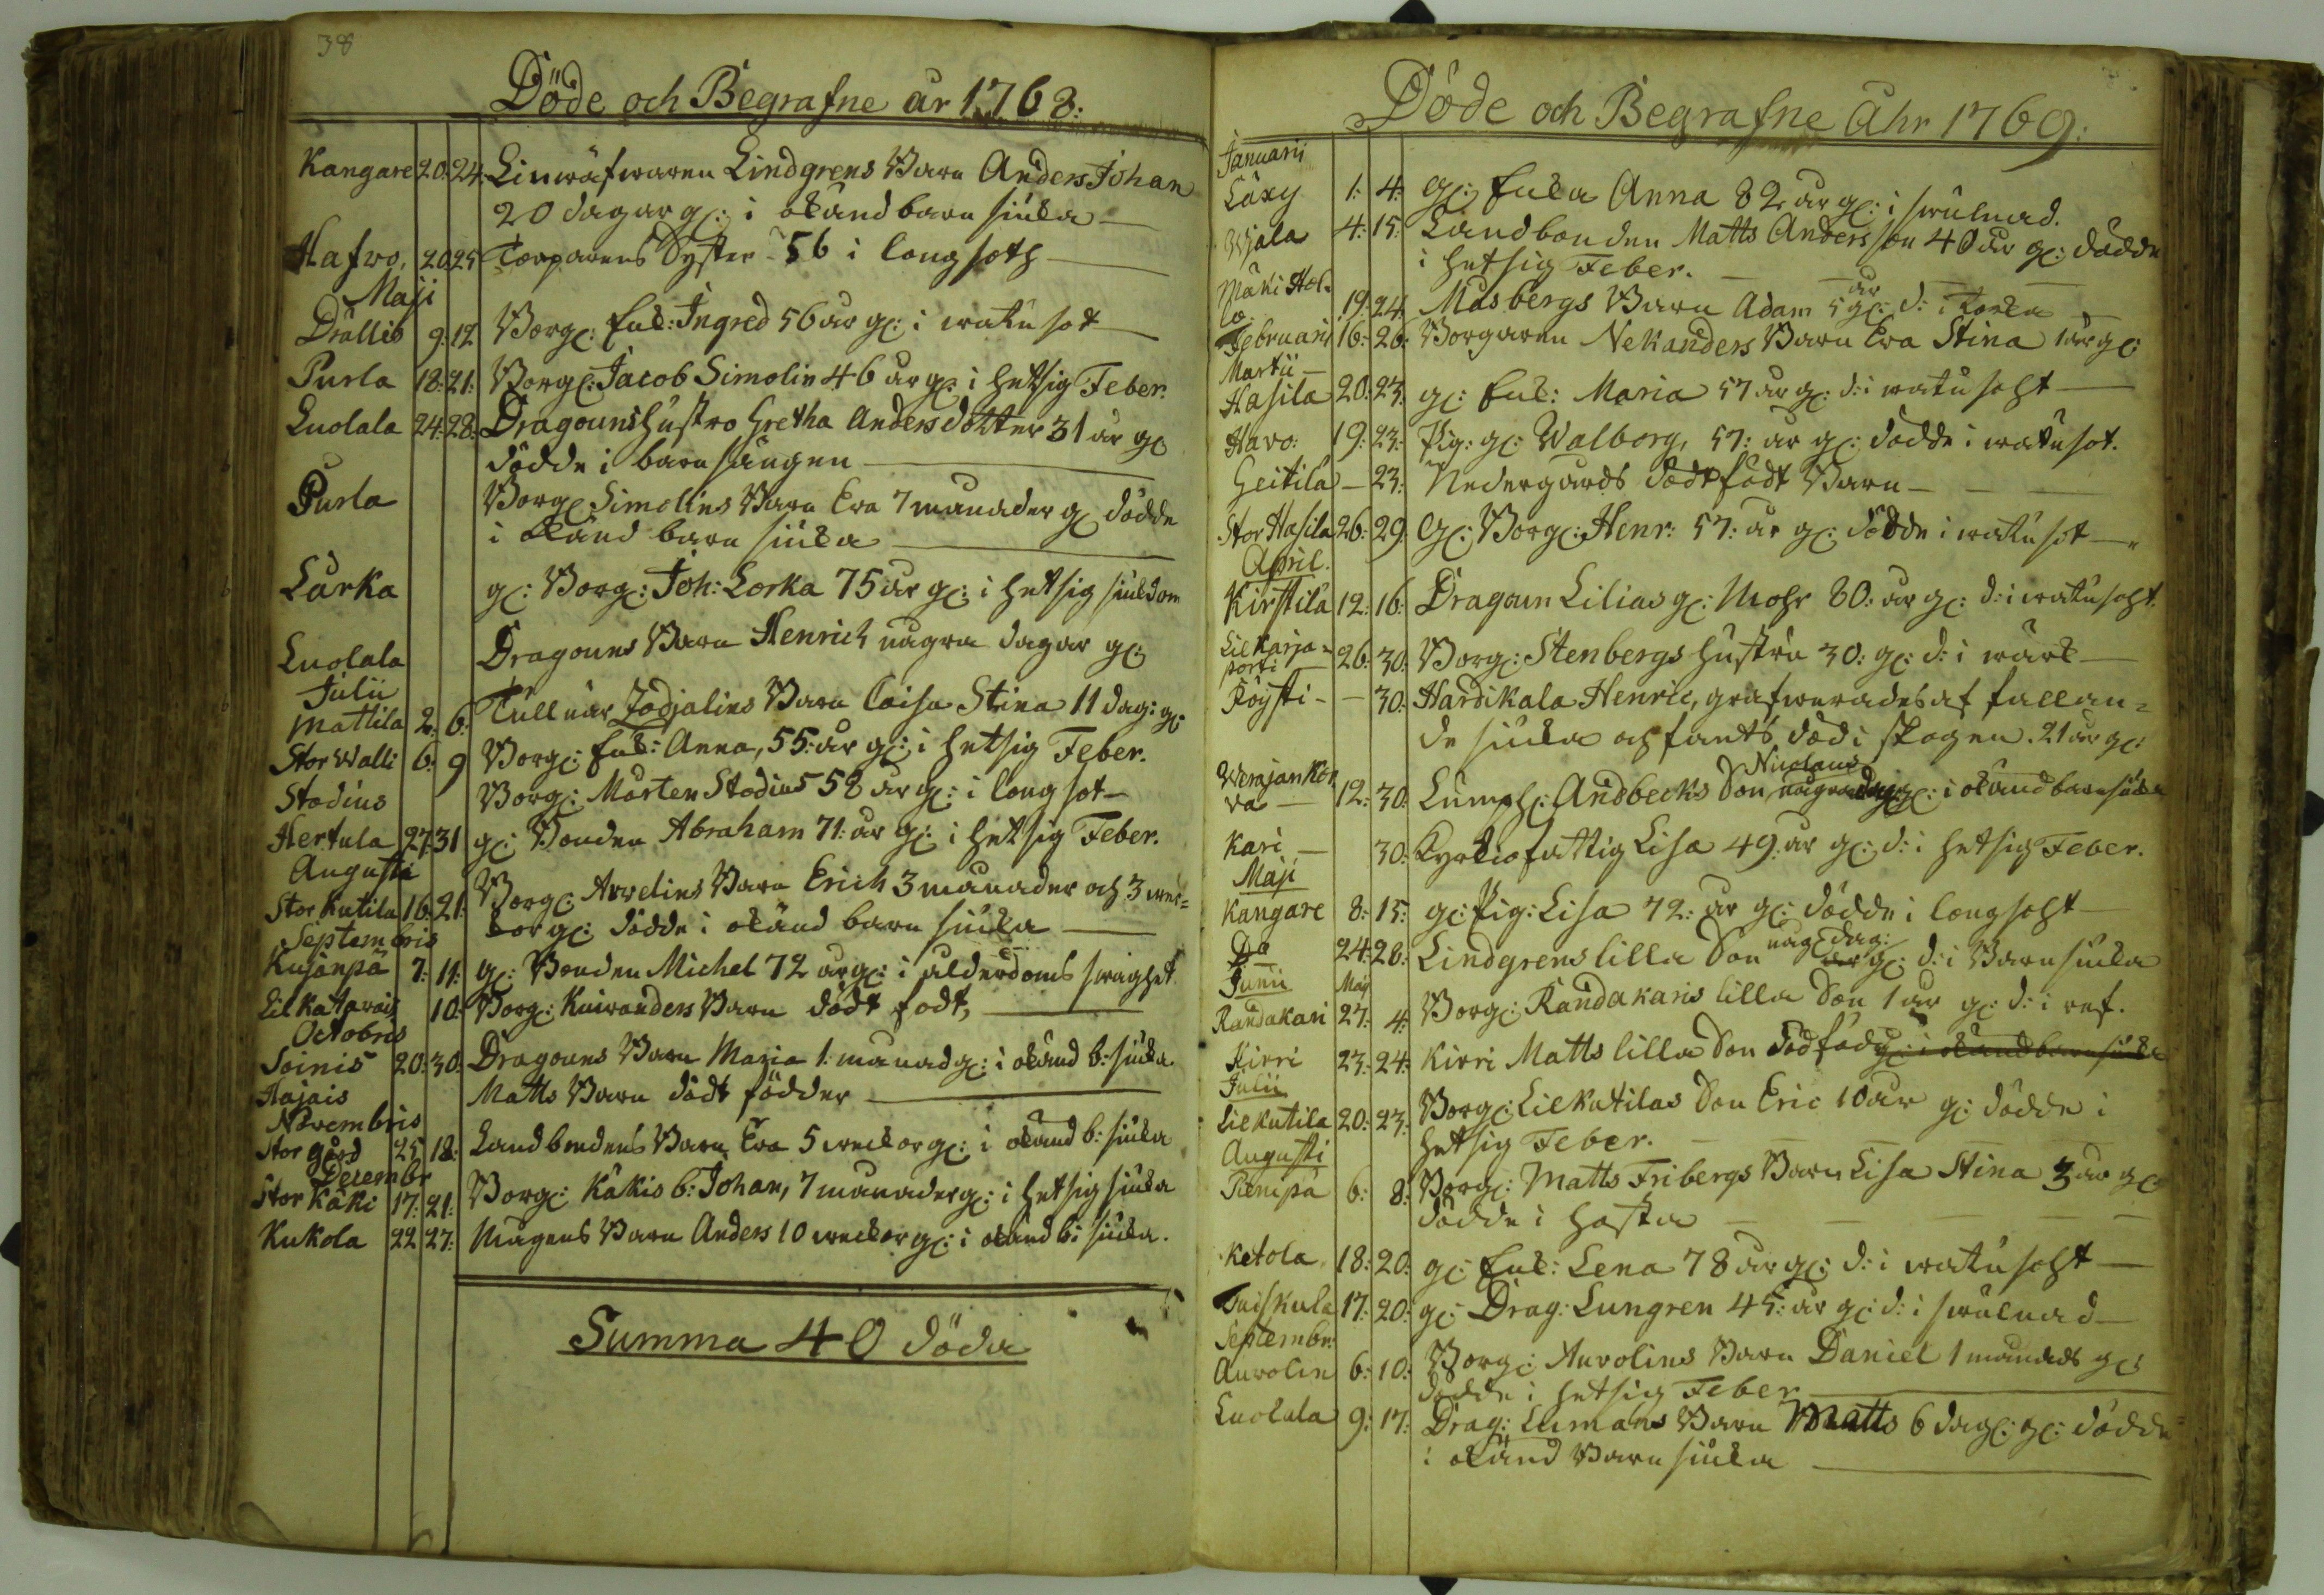 38
Döde och Begrafne år 1768:
Kangare 20: 24: Linwäfwaren Lindgrens Barn Anders Johan
20 dagar gl: i okänd barn siuka
Hafwo, 20 25 Torparens Syster 56 i lungsoth
Maji
Drållis 9: 12 Borg: Enk: Ingred 56 år gl: i watusot
Purla 18: 21: Borgl: Jacob Simolin 46 år gl: i hetsig Feber.
Luolala 24: 28: Dragouns hustro Gretha Andersdotter 31 år gl
dödde i barnsängen
Purla Borgl Simolins Barn Eva 7 månader gl dödde
i okänd barn siuka
Lurka gl: Borg: Joh: Lorka 75 år gl: i hetsig siukdom
Luolala Dragouns Barn Henrich några dagar gl:
Julii
Mattila 2: 6: Tullnär Zodjalins Barn Caisa Stina 11 dag: gl:
Stor Walli 6: 9 Borg: Enk: Anna, 55: år gl: i hetsig Feber.
Stodius Borg: Mårten Stodius 58 år gl: i lungsot
Hertula 27 31 gl: Bonden Abraham 71: år gl: i hetsig Feber.
Augusti
Stor Kutila 16: 21: Borgl: Arvelins Barn Erich 3 månader och 3 wec=
kor gl: dödde i okänd barn siuka
Septembris
Kujänpä 7: 11: gl: Bonden Michel 72 år gl: i ålderdoms swaghet
Lilkatarais 10: Borg: Kuivanders Barn dödt född,
Octobris
Soinis 20: 30: Dragouns Barn Maria 1: månad gl: i okänd b: siuka.
Hajais Matts Barn dödt födder
Novembris
Stor gård 25 18: Landbondens Barn Eva 5 weckor gl: i okänd b: siuka
Decembr
Stor Käki 17: 21: Borg: Käkis b: Johan, 7 månader gl: i hetsig siuka
Kukola 22 27: Mågens Barn Anders 10 weckor gl: i okänd b: siuka.
Summa 40 döda
Döde och Begrafne åhr 1769:
Januarii
Laxy 1: 4: gl: Enka Anna 82 år gl: i swulnad.
Wjala 4: 15: Landbonden Matts Andersson 40 år gl: dödde
i hetsig Feber.
Mäki Hol
la 19: 24 Masbergs Barn Adam 5 år gl: d: i koka
Februarii 16: 26: Borgaren Nekanders Barn Eva Stina 1 år gl:
Martii
Hasila 20: 23: gl: Enk: Maria 57 år gl: d: i watusoht
Havo: 19: 23: Pig: gl: Walborg, 57: år gl: dödde i watusot.
Geitila 23: Nedergårds dödtfödt Barn
Stor Hasila 26: 29: Gl: Borgl: Henr: 57: år gl: dödde i watusot
April.
Kirstila 12: 16: Dragoun Lilias gl: Mohr 80: år gl: d: i watusoht.
Lilkarja=
porti 26: 30: Borg: Stenbergs hustru 30: gl: d: i wärk
Röysti 30: Hardikala Henric, grafwerades af fallan=
de siuka och fants död i skogen. 21 år gl:
Werajankor
va 12: 30: Lumph: Andbecks Son Nicolaus några dag: gl: i okänd barnsiuka
Kari 30: Kyrkiofattig Lisa 49: år gl: d: i hetsig Feber.
Maji
Kangare 8: 15: gl: Pig: Lisa 72: år gl: dödde i lungsoht
Do 24: 28: Lindgrens lilla Son någ dag: år gl: d: i Barnsiuka
Junii Maj
Randakari 27: 4: Borg: Randakaris lilla Son 1 år gl: d: i ref.
Kirri 23: 24: Kirri Matts lilla Son dödföd gl: i okänd barnsiuka
Julii
Lilkutila 20: 23: Borg: Lilkutilas Son Eric 10 år gl: dödde i
hetsig Feber.
Augusti
Pienipä 6: 8: Borg: Matts Fribergs Barn Lisa Stina 3 år gl
dödde i hosta
Ketola 18: 20: gl: Enk: Lena 78 år gl: d: i watusoht
Tuiskula 17: 20: gl: Drag: Lungren 45: år gl: d: i swulnad
Septembr:
Auvolin 6: 10: Borg: Auvolins Barn Daniel 1 månads gl:
dödde i hetsig Feber
Luolala 9: 17: Drag: Lumans Barn Matts 6 dag: gl: dödde
i okänd Barn siuka